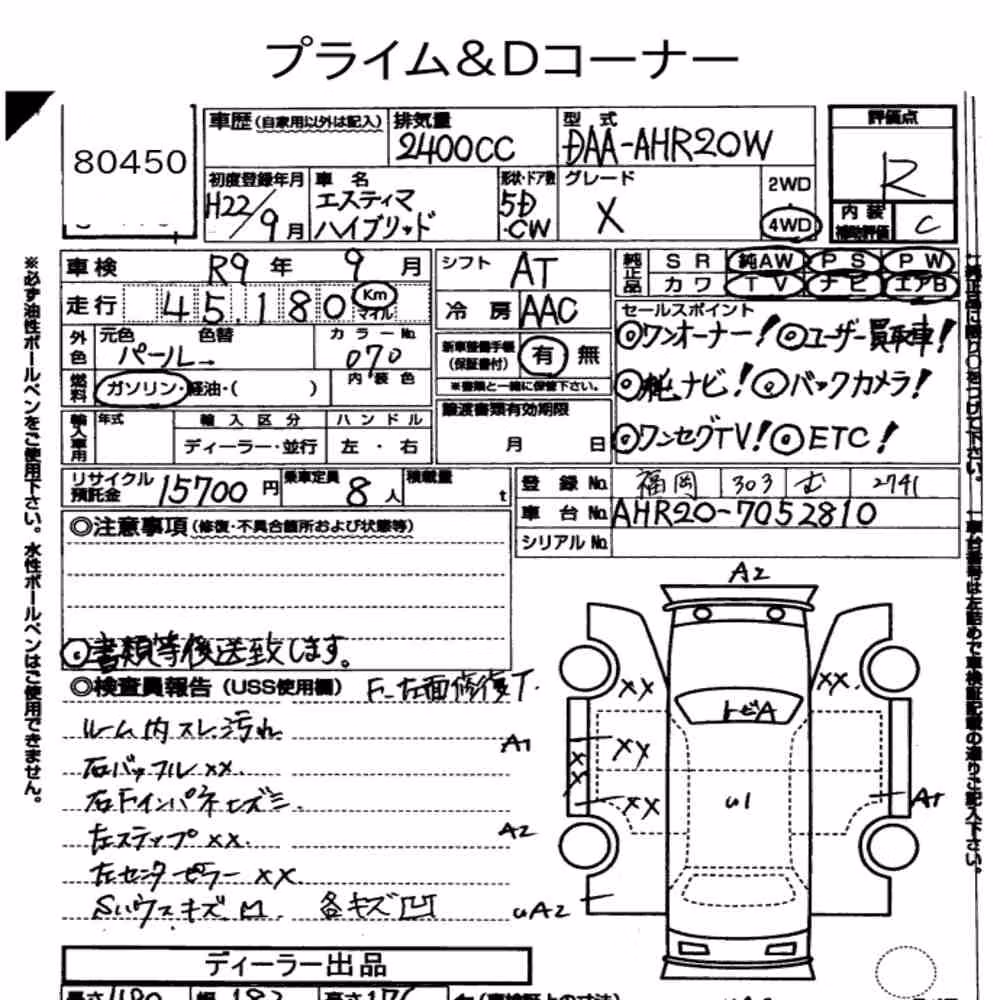 プライム&Dコーナー
80450
車歴(自家用以外は記入)
排気量
2400CC
型式
DAA-AHR20W
評価点
R
内装
補助評価
C
初度登録年月
H22/9月
車名
エスティマ
ハイブリッド
形状・ドア数
5D
・CW
グレード
X
2WD
4WD
車検 R9年 9月
走行 45,180 Km マイル
外色 元色 色替 カラーNo.
パール→ 070
燃料 ガソリン・軽油・( ) 内装色
輸入車用 年式 輸入区分 ハンドル
ディーラー・並行 左・右
シフト AT
冷房 AAC
新車整備手帳
(保証書付)
有 無
※書類と一緒に保管下さい。
譲渡書類有効期限
月 日
純正品 SR 純AW PS PW
カワ TV ナビ エアB
セールスポイント
◎ワンオーナー! ◎ユーザー買取車!
◎純ナビ! ◎バックカメラ!
◎ワンセグTV! ◎ETC!
リサイクル預託金 15700円 乗車定員 8人 積載量 t
登録No. 福岡 303 む 2741
車台No. AHR20-7052810
シリアルNo.
◎注意事項(修復・不具合箇所および状態等)
◎書類等後送致します。
◎検査員報告(USS使用欄) F-左面修復T.
ルーム内スレ汚れ
右バッフルXX.
右Fインパネエズミ.
左ステップXX.
左センターピラーXX.
Sハウスキズ 各キズ凹
A2
XX
XX.
トビA
A1
XX
XX
XX
U1
A1
A2
UA2
ディーラー出品
※必ず油性ボールペンをご使用下さい。水性ボールペンはご使用できません。